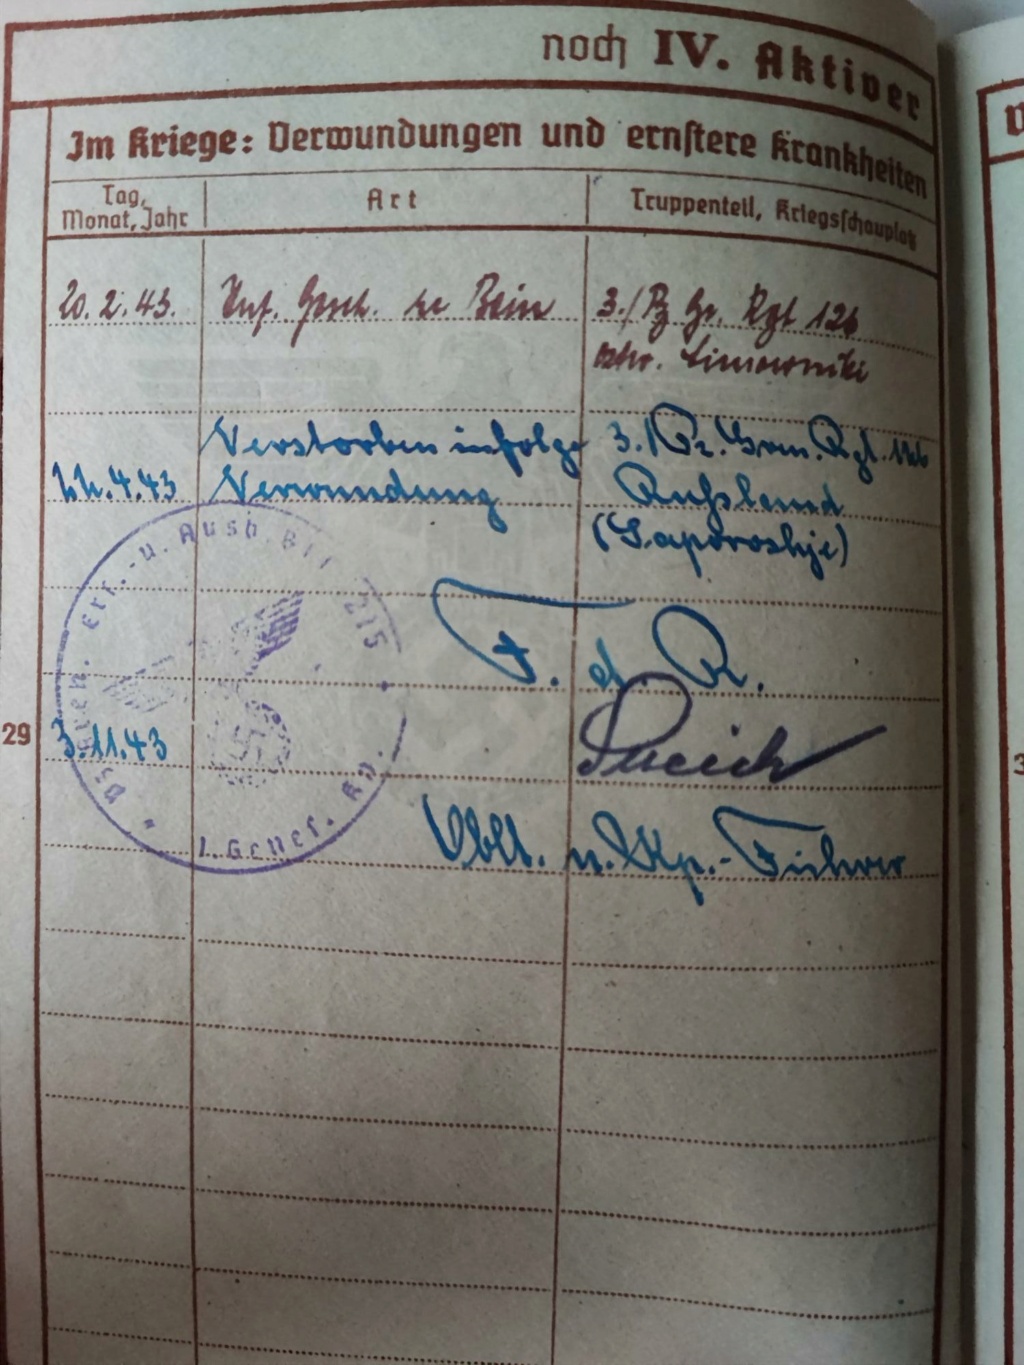 noch IV. Aktiver
Im Kriege: Verwundungen und ernstere Krankheiten
Tag, Monat, Jahr
Art
Truppenteil, Kriegsschauplatz
20. 2. 43. Inf. Gesch. re Bein 3./Pz Gr. Rgt 126
ostw. Limowniki
Verstorben infolge 3./Pz. Gren. Rgt. 126
22.4.43 Verwundung Rußland
(Saporoshje)
F. d. R.
29
3.11.43
Oblt. u. Kp.-Führer
1. Genes. Kp.